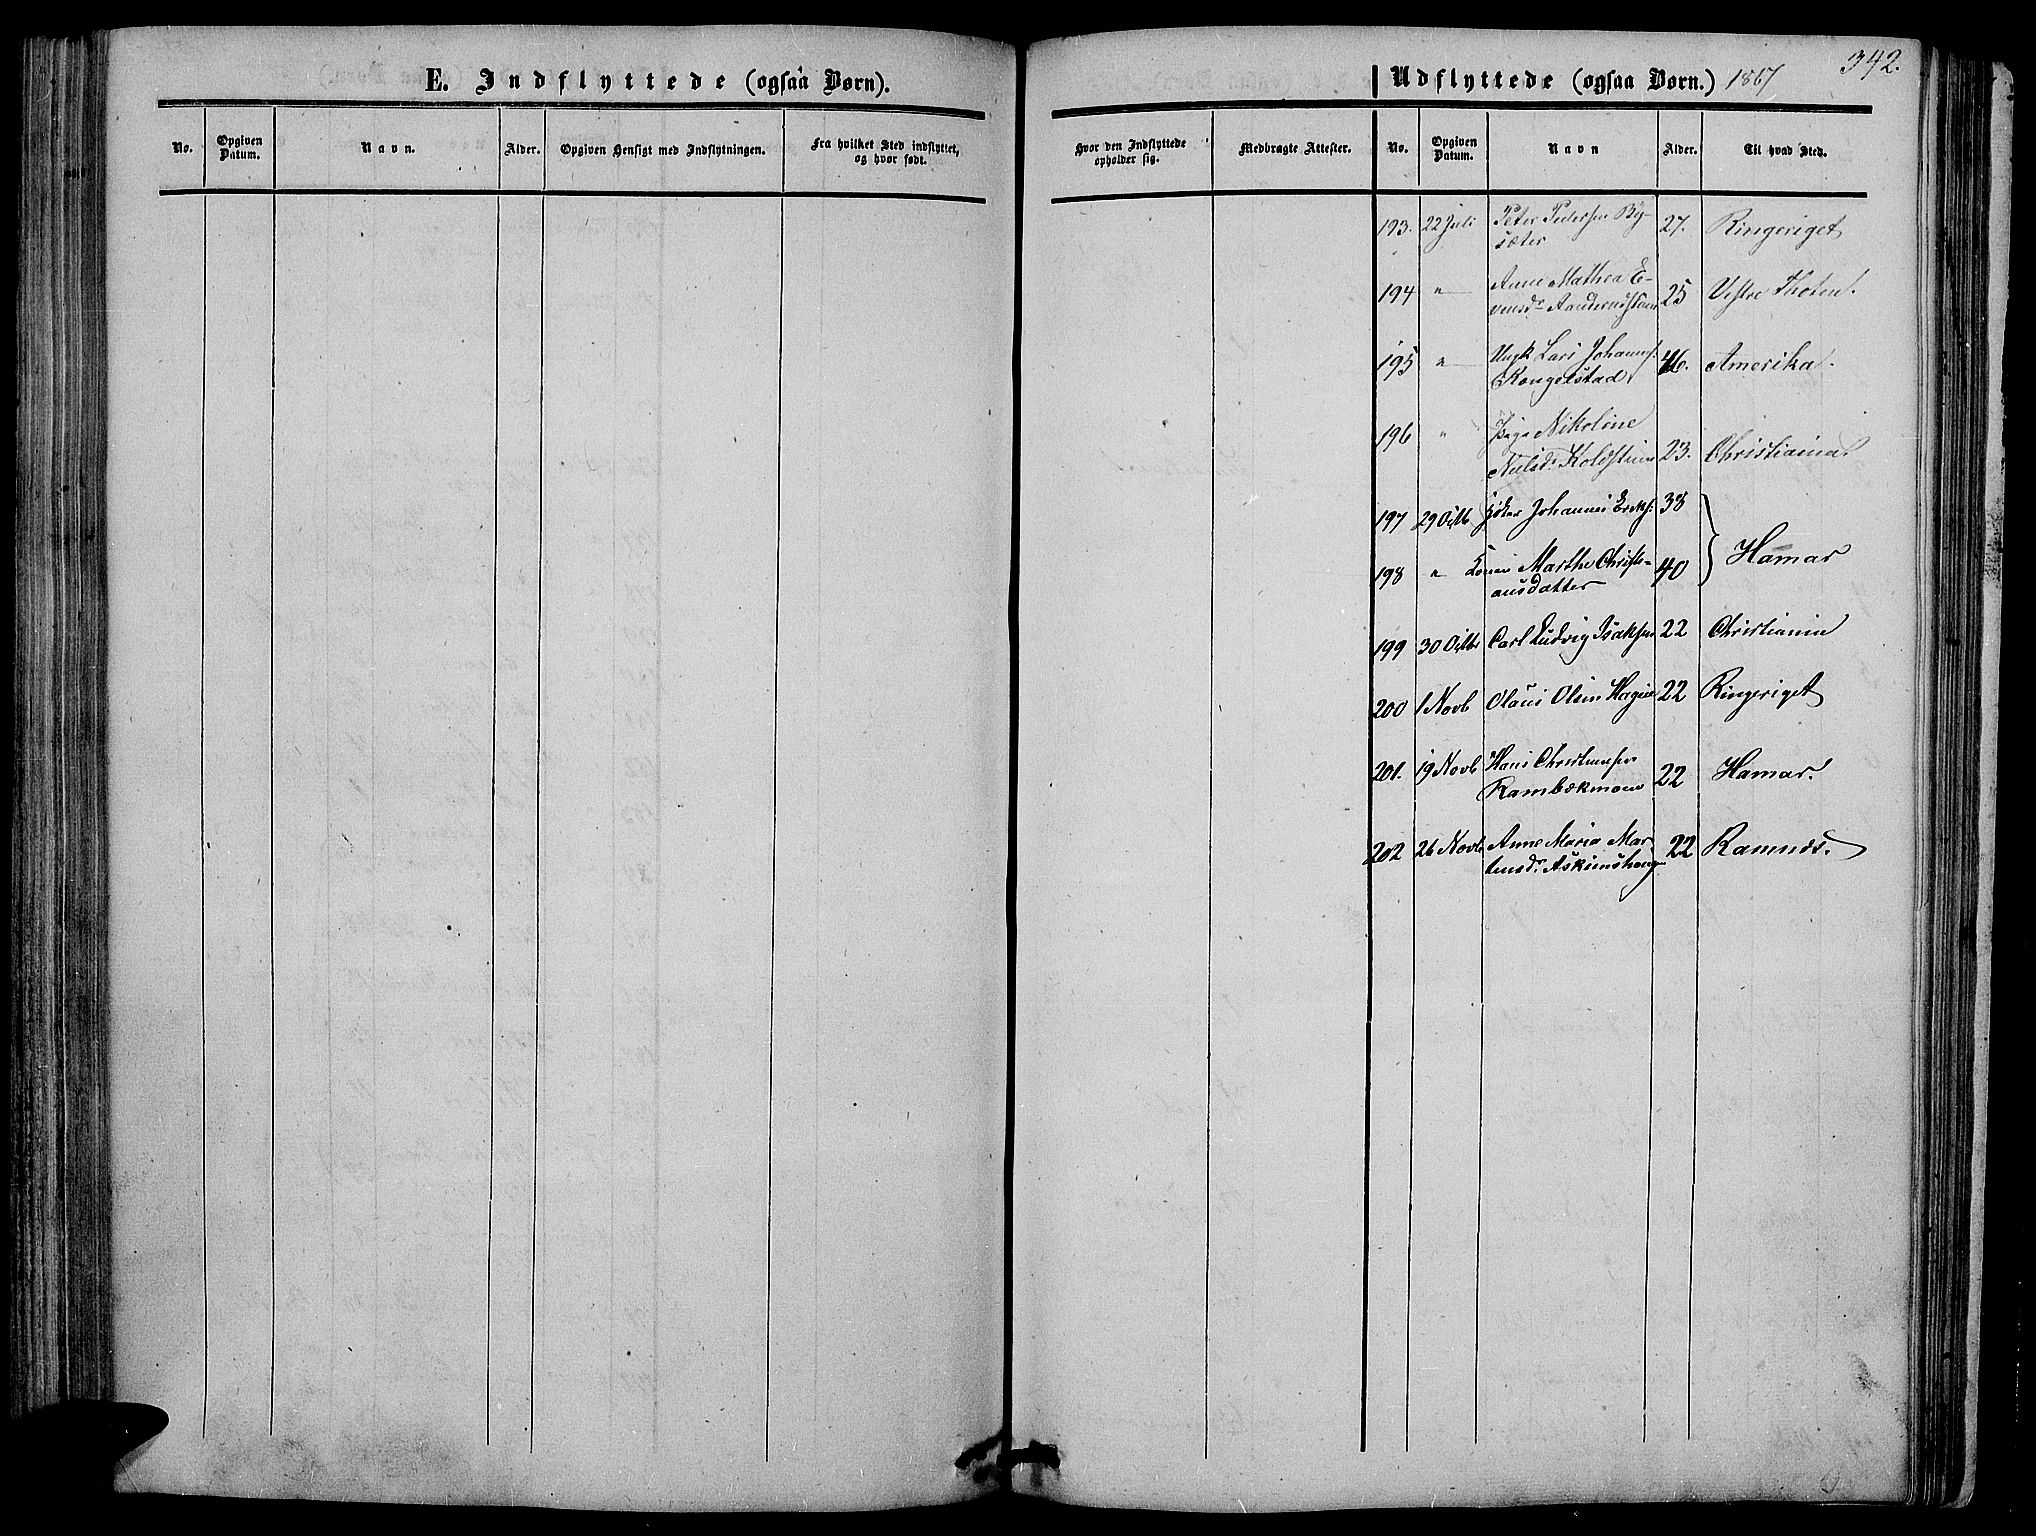 E. Indflyttede (ogsaa Børn).
No.
Opgiven Datum.
Navn.
Alder.
Opgiven Hensigt med Indflytningen.
Fra hvilket Sted indflyttet,
og hvor født.
342.
Udflyttede (ogsaa Børn.) 1867
Hvor den Indflyttede
opholder sig.
Medbragte Attester.
No.
Opgiven Datum.
Navn
Alder.
Til hvad Sted.
193. 22 Juli Peter Pedersen By-
sæter 27. Ringeriget
194 " Anne Mathea E-
vensdr 25 Vestre Thoten.
195 " Ungk Lars Johannes.
Kongelstad 46. Amerika.
196 " Pige Nikoline
Nielsdr. Koldstuen 23. Christiania
197 29 Octb Johannes Ericks. 38
198 " Konen Marthe Christi-
ansdatter 40 Hamar
199 30 Octbr Carl Ludvig Isaksen 22 Christiania
200 1 Novb Olaus Olsen Hagen 22 Ringeriget
201. 19 Novb Hans Christiansen
Rambækmoen 22 Hamar.
202 26 Novb Anne Maria Mar
tensdr. Askimshaug 22 Ramnæs.